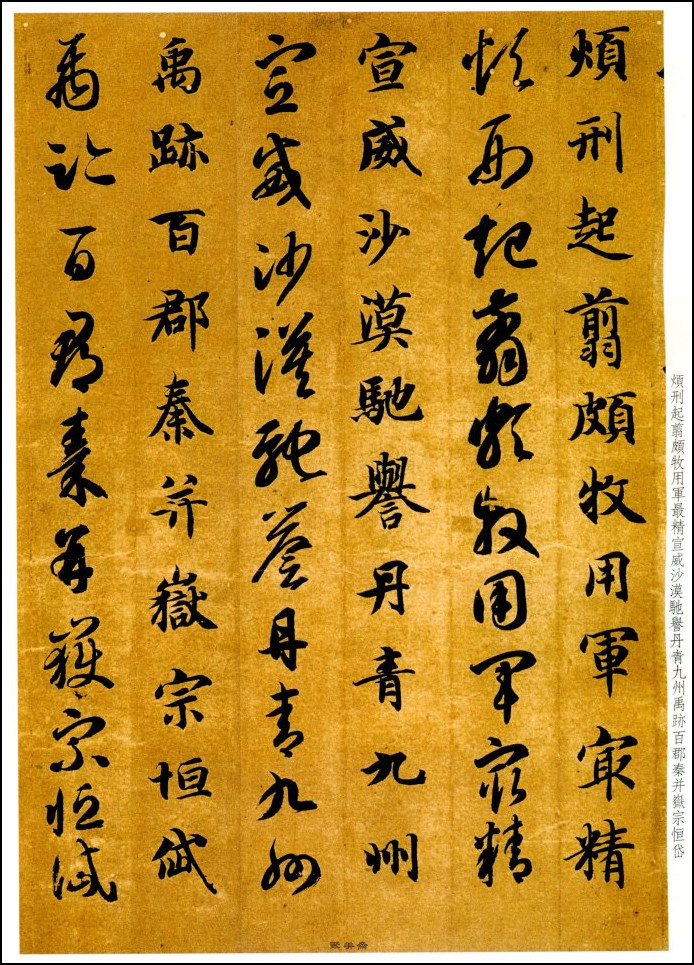 煩刑起翦頗牧用軍最精宣威沙漠馳譽丹青九州禹跡百郡秦并嶽宗恒岱
煩刑起翦頗牧用軍㝡精
煩刑起翦頗牧用軍㝡精
宣威沙漠馳譽丹青九州
宣威沙漠馳譽丹青九州
禹跡百郡秦并嶽宗恒岱
禹跡百郡秦并嶽宗恒岱